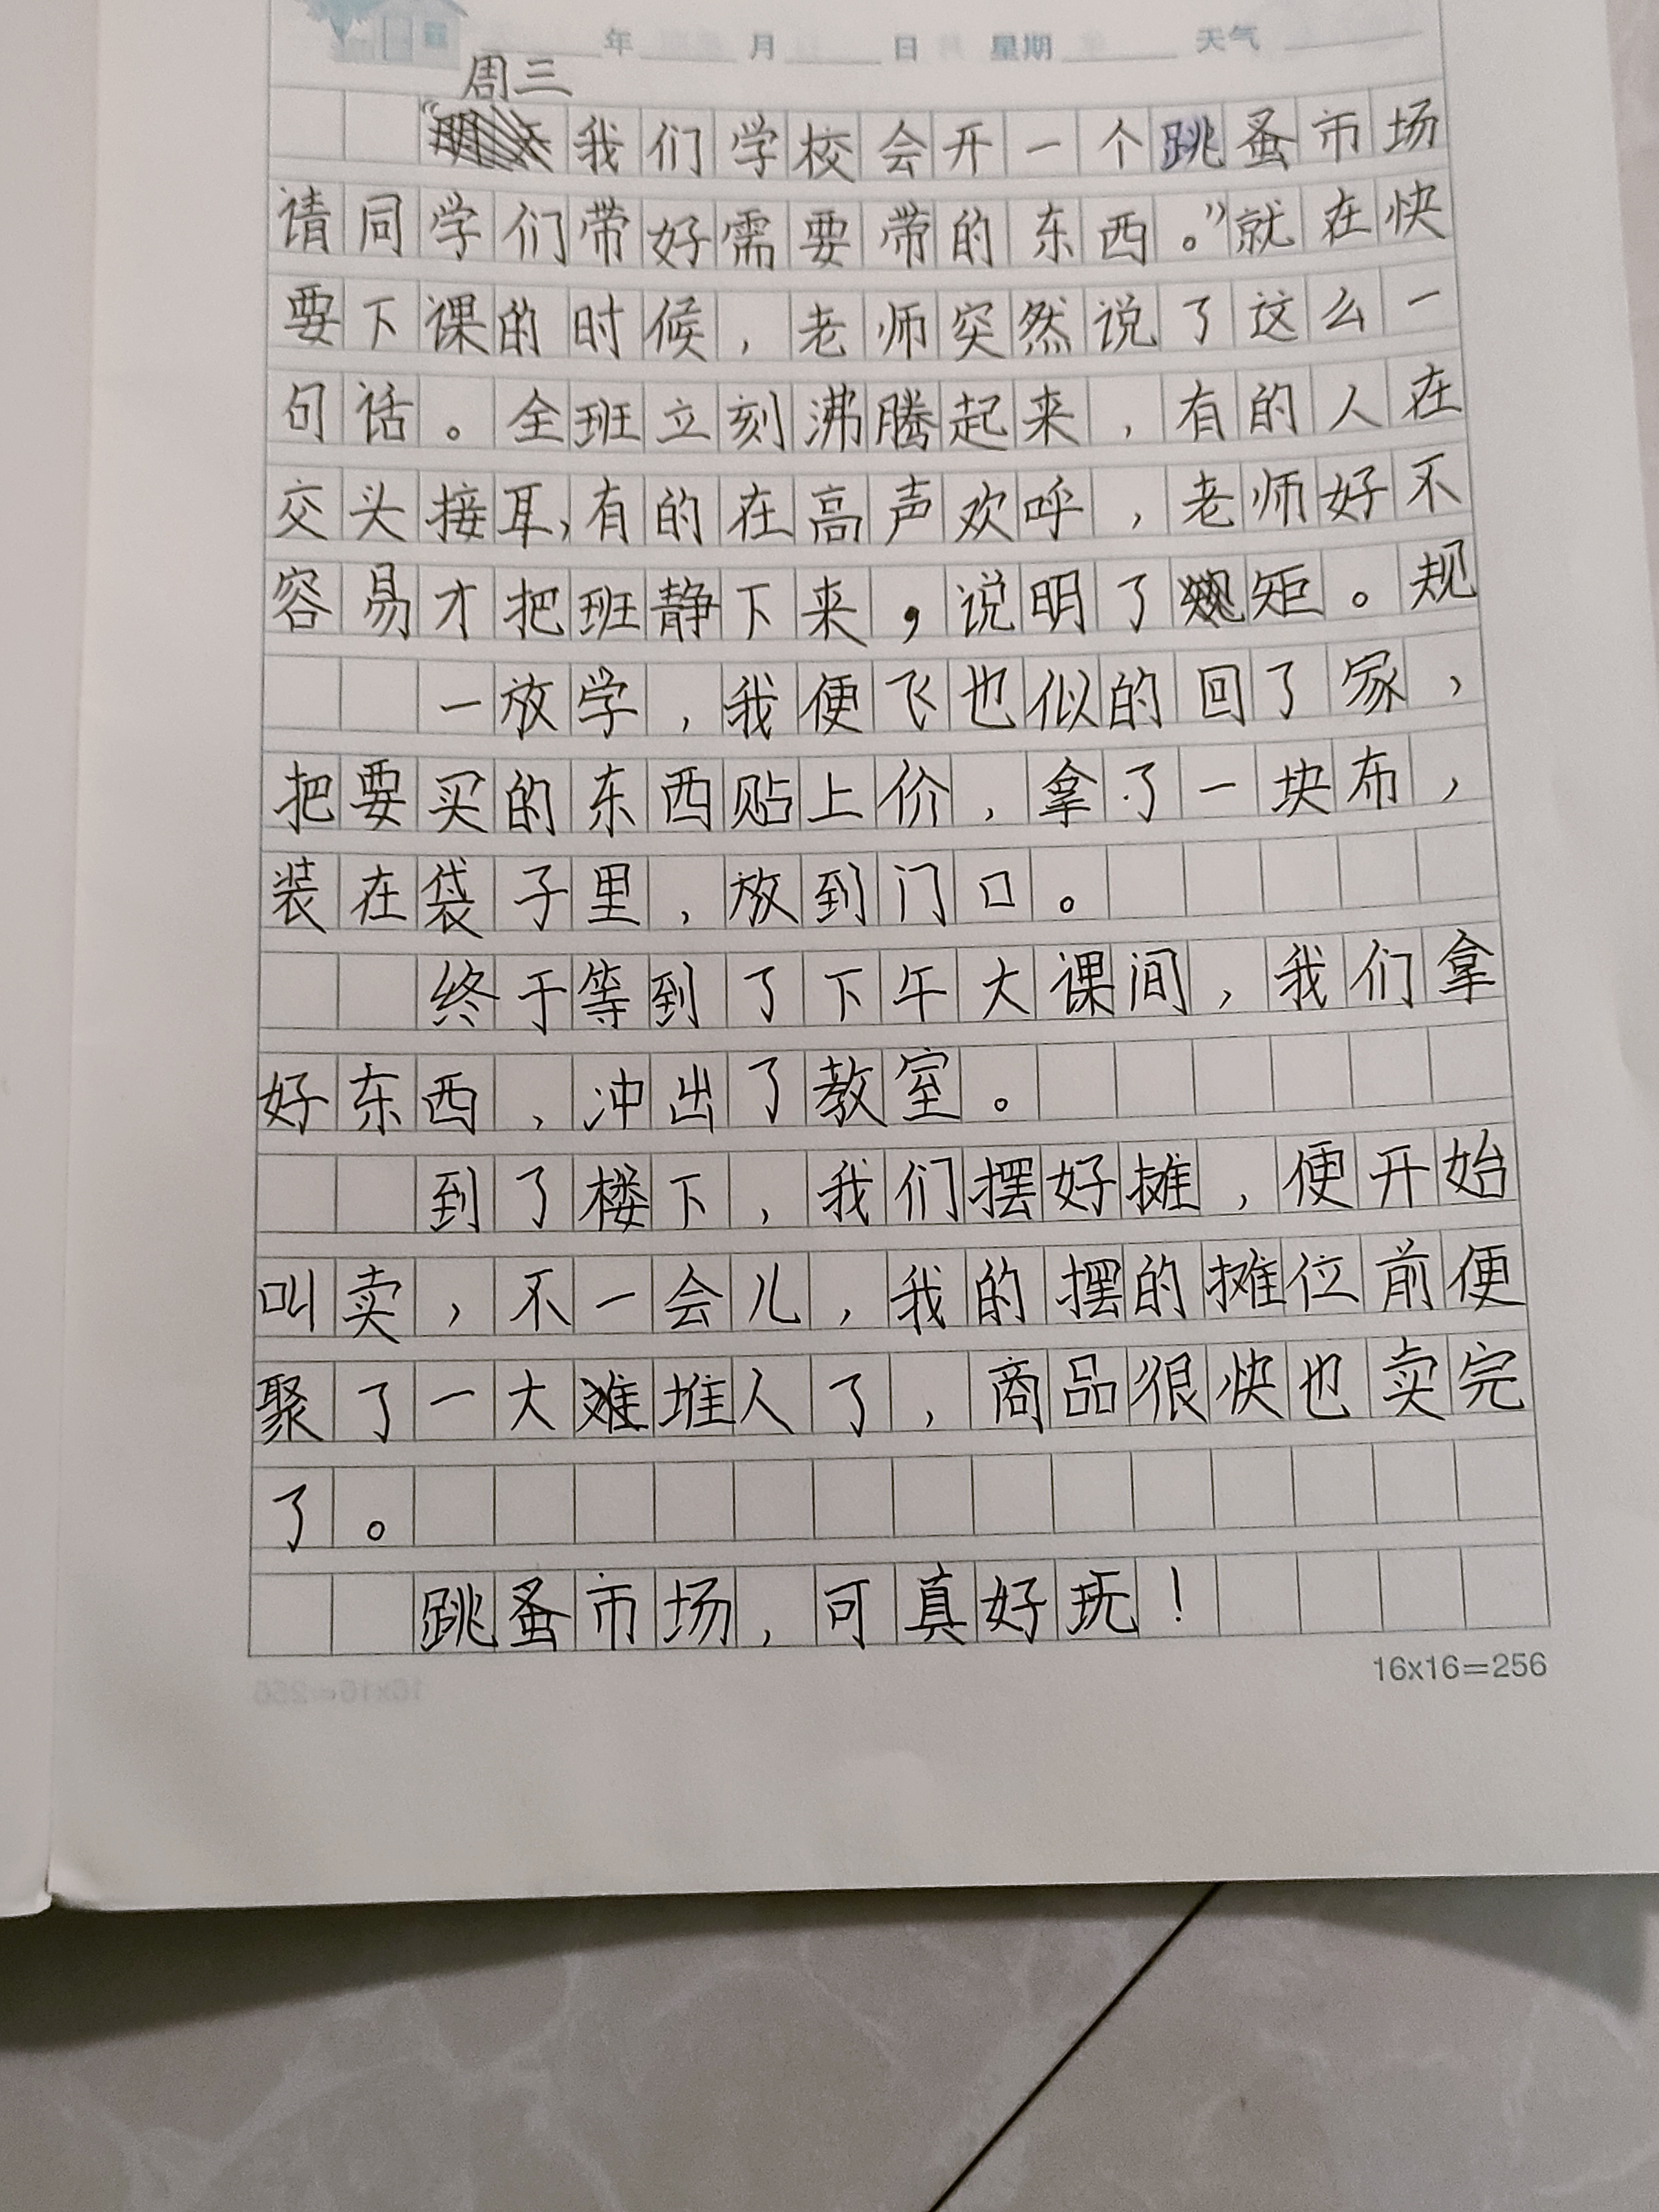 年 月 日 星期 天气
周三
“我们学校会开一个跳蚤市场
请同学们带好需要带的东西。”就在快
要下课的时候，老师突然说了这么一
句话。全班立刻沸腾起来，有的人在
交头接耳，有的在高声欢呼，老师好不
容易才把班静下来，说明了矩。规
一放学，我便飞也似的回了家，
把要买的东西贴上价，拿了一块布，
装在袋子里，放到门口。
终于等到了下午大课间，我们拿
好东西，冲出了教室。
到了楼下，我们摆好摊，便开始
叫卖，不一会儿，我的摆的摊位前便
聚了一大堆人了，商品很快也卖完
了。
跳蚤市场，可真好玩！
16x16=256